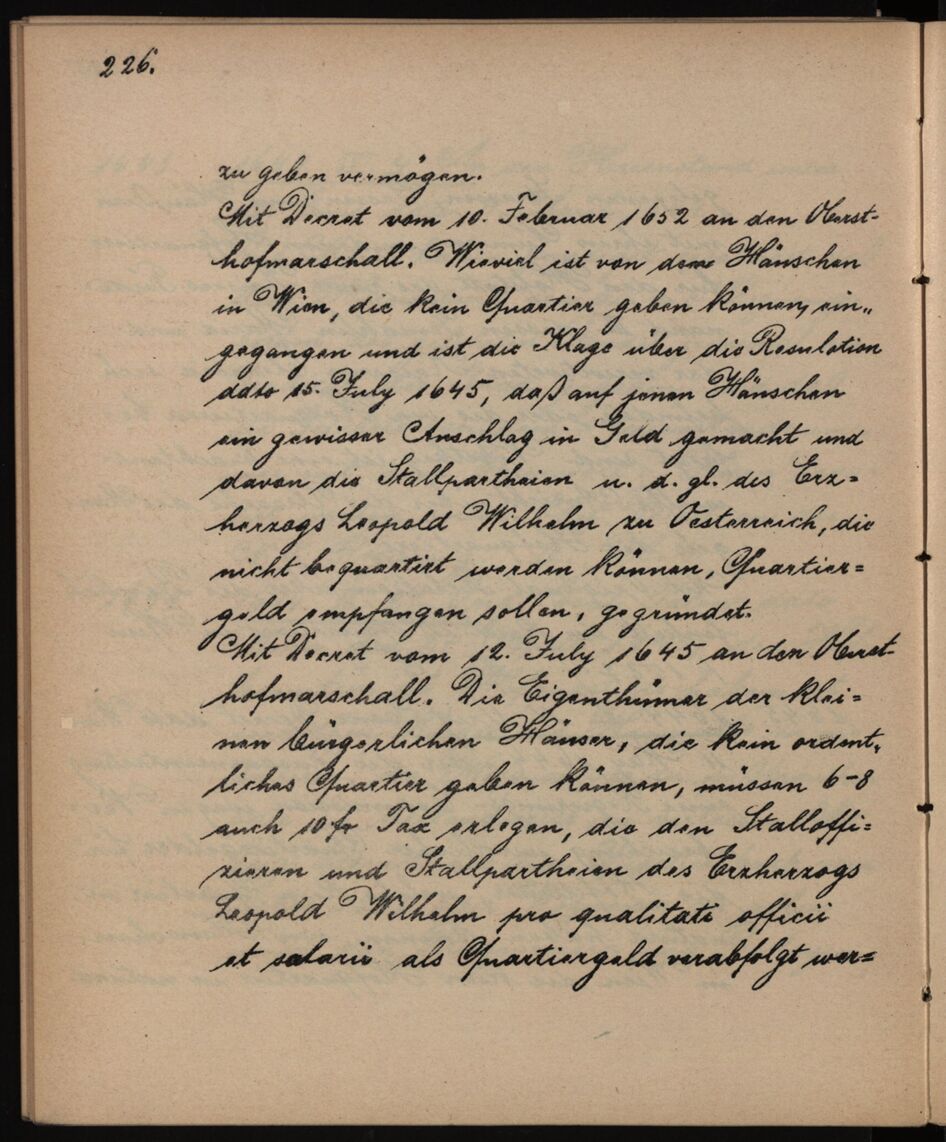 226.
zu geben vermögen.
Mit Decret vom 10. Februar 1652 an den Oberst-
hofmarschall. Wieviel ist von denen Häuschen
in Wien, die kein Quartier geben können, ein„
gegangen und ist die Klage über die Resolution
ddto 15. July 1645, daß auf jenen Häuschen
ein gewisser Anschlag in Geld gemacht und
davon die Stallpartheien u. d. gl. des Erz=
herzogs Leopold Wilhelm zu Oesterreich, die
nicht bequartirt werden können, Quartier=
geld empfangen sollen, gegründet.
Mit Decret vom 12. July 1645 an den Oberst-
hofmarschall. Die Eigenthümer der klei=
nen bürgerlichen Häuser, die kein ordent„
liches Quartier geben können, müssen 6-8
auch 10 fr Tax erlegen, die den Stalloffi=
zieren und Stallpartheien des Erzherzogs
Leopold Wilhelm pro qualitate officii
et salarii als Quartiergeld verabfolgt wer=